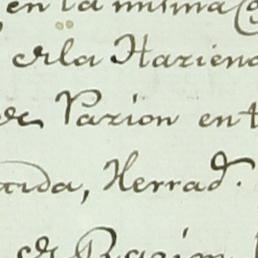 en la misma
de la Hazien
de Razion ent
tida, Herrad.
de Razion